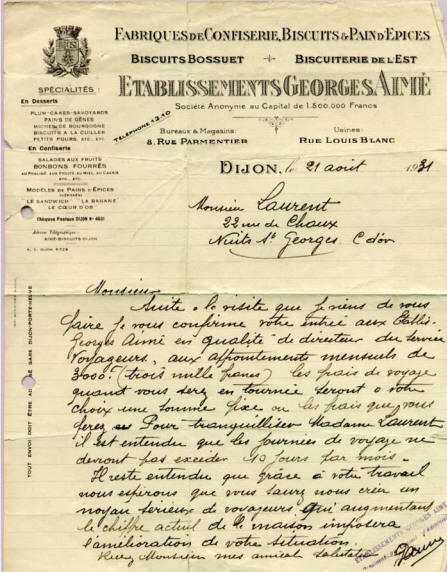 FABRIQUES DE CONFISERIE, BISCUITS & PAIN D'EPICES
BISCUITS BOSSUET BISCUITERIE DE L'EST
ETABLISSEMENTS GEORGES AIMÉ
Société Anonyme au Capital de 1.500.000 Francs
TÉLÉPHONE 12.10
Bureaux & Magasins:
8, RUE PARMENTIER
Usines:
RUE LOUIS BLANC
SPÉCIALITÉS:
En Desserts
PLUM-CAKES-SAVOYARDS
PAINS DE GÊNES
MICHES DE BOURGOGNE
BISCUITS A LA CUILLER
PETITS FOURS, ETC., ETC.
En Confiserie
SALADES AUX FRUITS
BONBONS FOURRÉS
AU PRALINÉ, AUX FRUITS, AU MIEL, AU CASSIS
ETC., ETC.
MODÈLES DE PAINS D'ÉPICES
LE SANDWICH "LA BANANE"
LE CŒUR D'OR
Chèques Postaux DIJON N°
Adresse Télégraphique:
AIMÉ-BISCUITS-DIJON
DIJON, le 21 août 1931
Monsieur Laurent
22 rue de Chaux
Nuits St Georges. Cdor
Monsieur
Suite à la visite que je viens de vous
faire je vous confirme votre entrée aux Etablis.
Georges Aimé en qualité de directeur du service
Voyageurs, aux appointements mensuels de
3000f. (trois mille francs) les frais de voyage
quand vous serez en tournée seront à votre
choix une somme fixe ou les frais que vous
ferez Pour tranquilliser Madame Laurent
il est entendu que les journées de voyage ne
devront pas excéder 10 jours par mois.
Il reste entendu que grâce à votre travail
nous espérons que vous saurez nous créer un
noyau sérieux de voyageurs qui augmentant
le chiffre actuel de la maison imposera
l'amélioration de votre situation.
Recevez Monsieur mes amicales salutations
ETABLISSEMENTS GEORGES AIMÉ
TOUT ENVOI DOIT ÊTRE ADRESSÉ GARE DIJON-PORTE-NEUVE